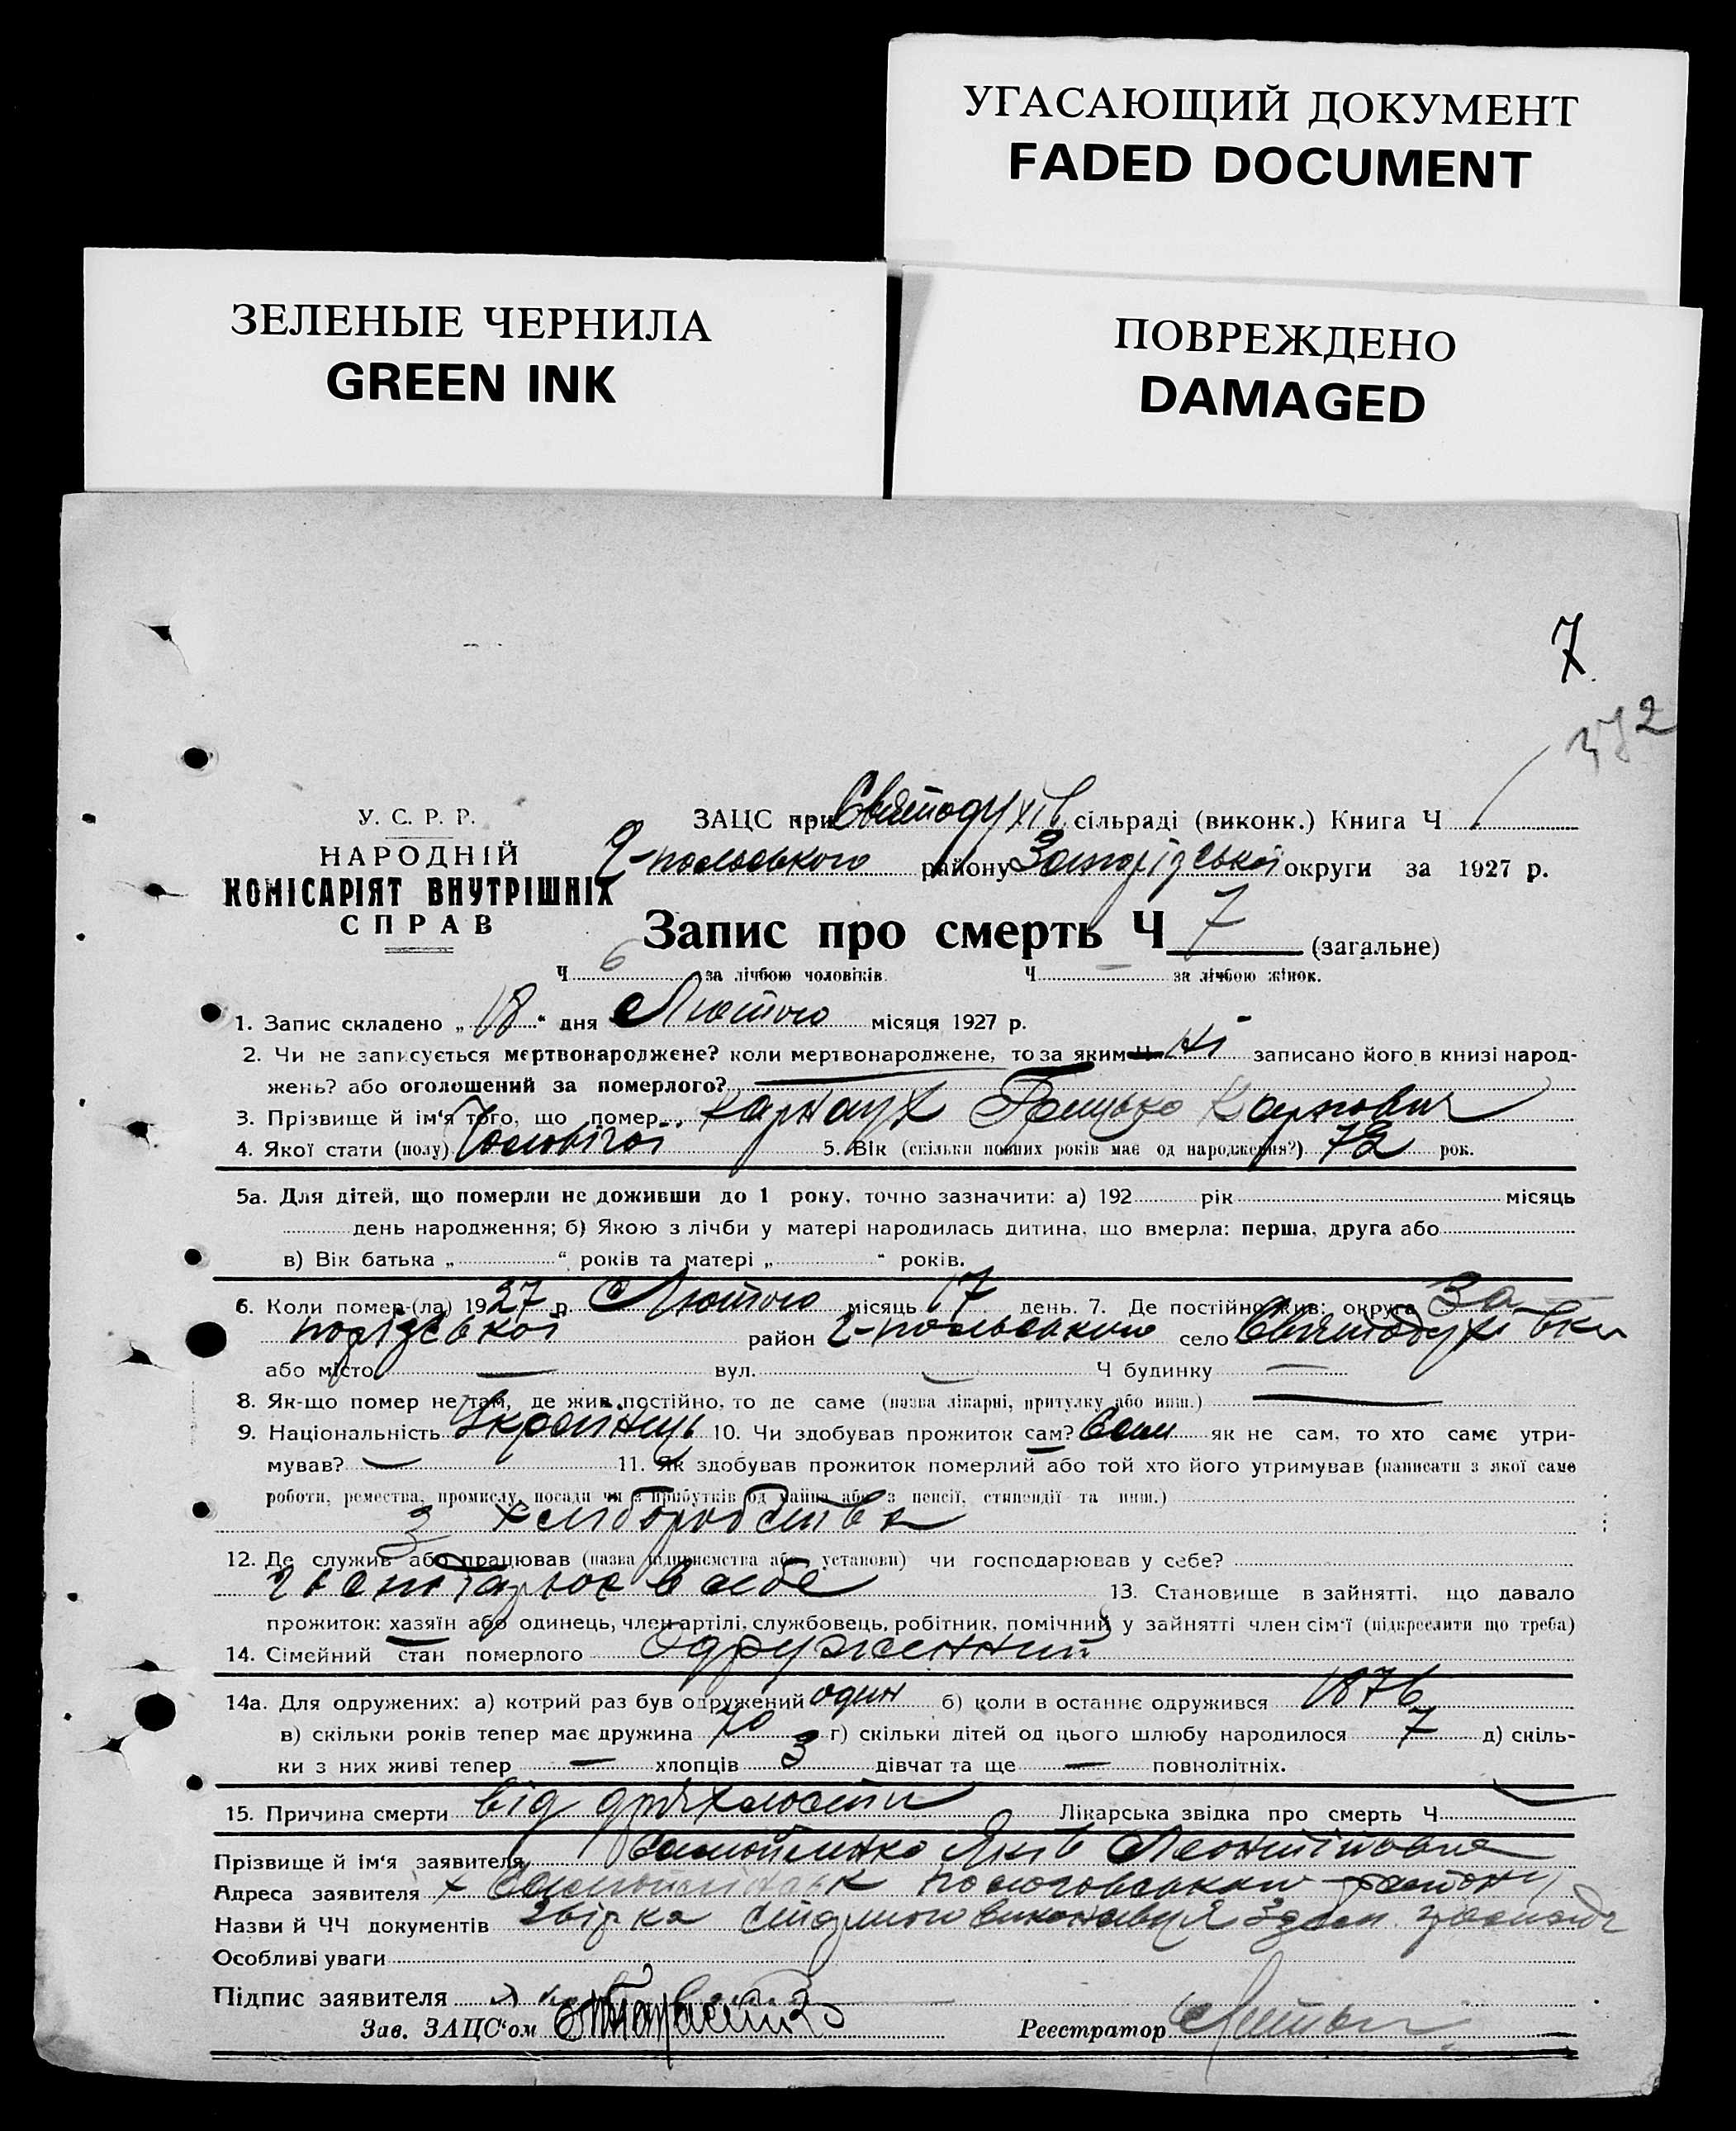 УГАСАЮЩИЙ ДОКУМЕНТ
FADED DOCUMENT
ЗЕЛЕНЫЕ ЧЕРНИЛА
GREEN INK
ПОВРЕЖДЕНО
DAMAGED
7
372
У. С. Р. Р.
НАРОДНІЙ
КОМІСАРІЯТ ВНУТРІШНІХ
СПРАВ
ЗАЦС при Святодухів сільраді (виконк.) Книга Ч
Г-польського району Запорізської округи за 1927 р.
Запис про смерть Ч 7 (загальне)
Ч 6 за лічбою чоловіків. Ч — за лічбою жінок.
1. Запис складено „ 18 “ дня Лютого місяця 1927 р.
2. Чи не записується мертвонароджене? коли мертвонароджене, то за яким Ч ні записано його в книзі народ-
жень? або оголошений за померлого? —
3. Прізвище й ім‘я того, що помер Картаух Грицько Карпович
4. Якої стати (полу) Чоловічої 5. Вік (скільки повних років має од народження?) 72 рок.
5а. Для дітей, що померли не доживши до 1 року, точно зазначити: а) 192 рік місяць
день народження; б) Якою з лічби у матері народилась дитина, що вмерла: перша, друга або
в) Вік батька „ “ років та матері „ “ років.
6. Коли помер (ла) 1927 р. Лютого місяць 17 день. 7. Де постійно жив: округа За-
порізської район Г-польського село Святодухівки
або місто — вул. — Ч будинку —
8. Як-що помер не там, де жив постійно, то де саме (назва лікарні, притулку або инш.) —
9. Національність Українець 10. Чи здобував прожиток сам? Сам як не сам, то хто саме утри-
мував? — 11. Як здобував прожиток померлий або той хто його утримував (написати з якої саме
роботи, ремества, промислу, посади чи з прибутків од майна або з пенсії, стипендії та инш.)
З хліборобства
12. Де служив або працював (назва підприємства або установи) чи господарював у себе?
в себе 13. Становище в зайнятті, що давало
прожиток: хазяїн або одинець, член артілі, службовець, робітник, помічний у зайнятті член сім‘ї (підкреслити що треба)
14. Сімейний стан померлого Одруженний
14а. Для одружених: а) котрий раз був одружений один б) коли в останнє одружився 1876
в) скільки років тепер має дружина 70 г) скільки дітей од цього шлюбу народилося 7 д) скіль-
ки з них живі тепер — хлопців 3 дівчат та ще — повнолітніх.
15. Причина смерти Від дряхлости Лікарська звідка про смерть Ч —
Прізвище й ім‘я заявителя Самойленко Яків Леонтійович
Адреса заявителя х
Назви й ЧЧ документів
Особливі уваги
Підпис заявителя
Зав. ЗАЦС‘ом Реестратор